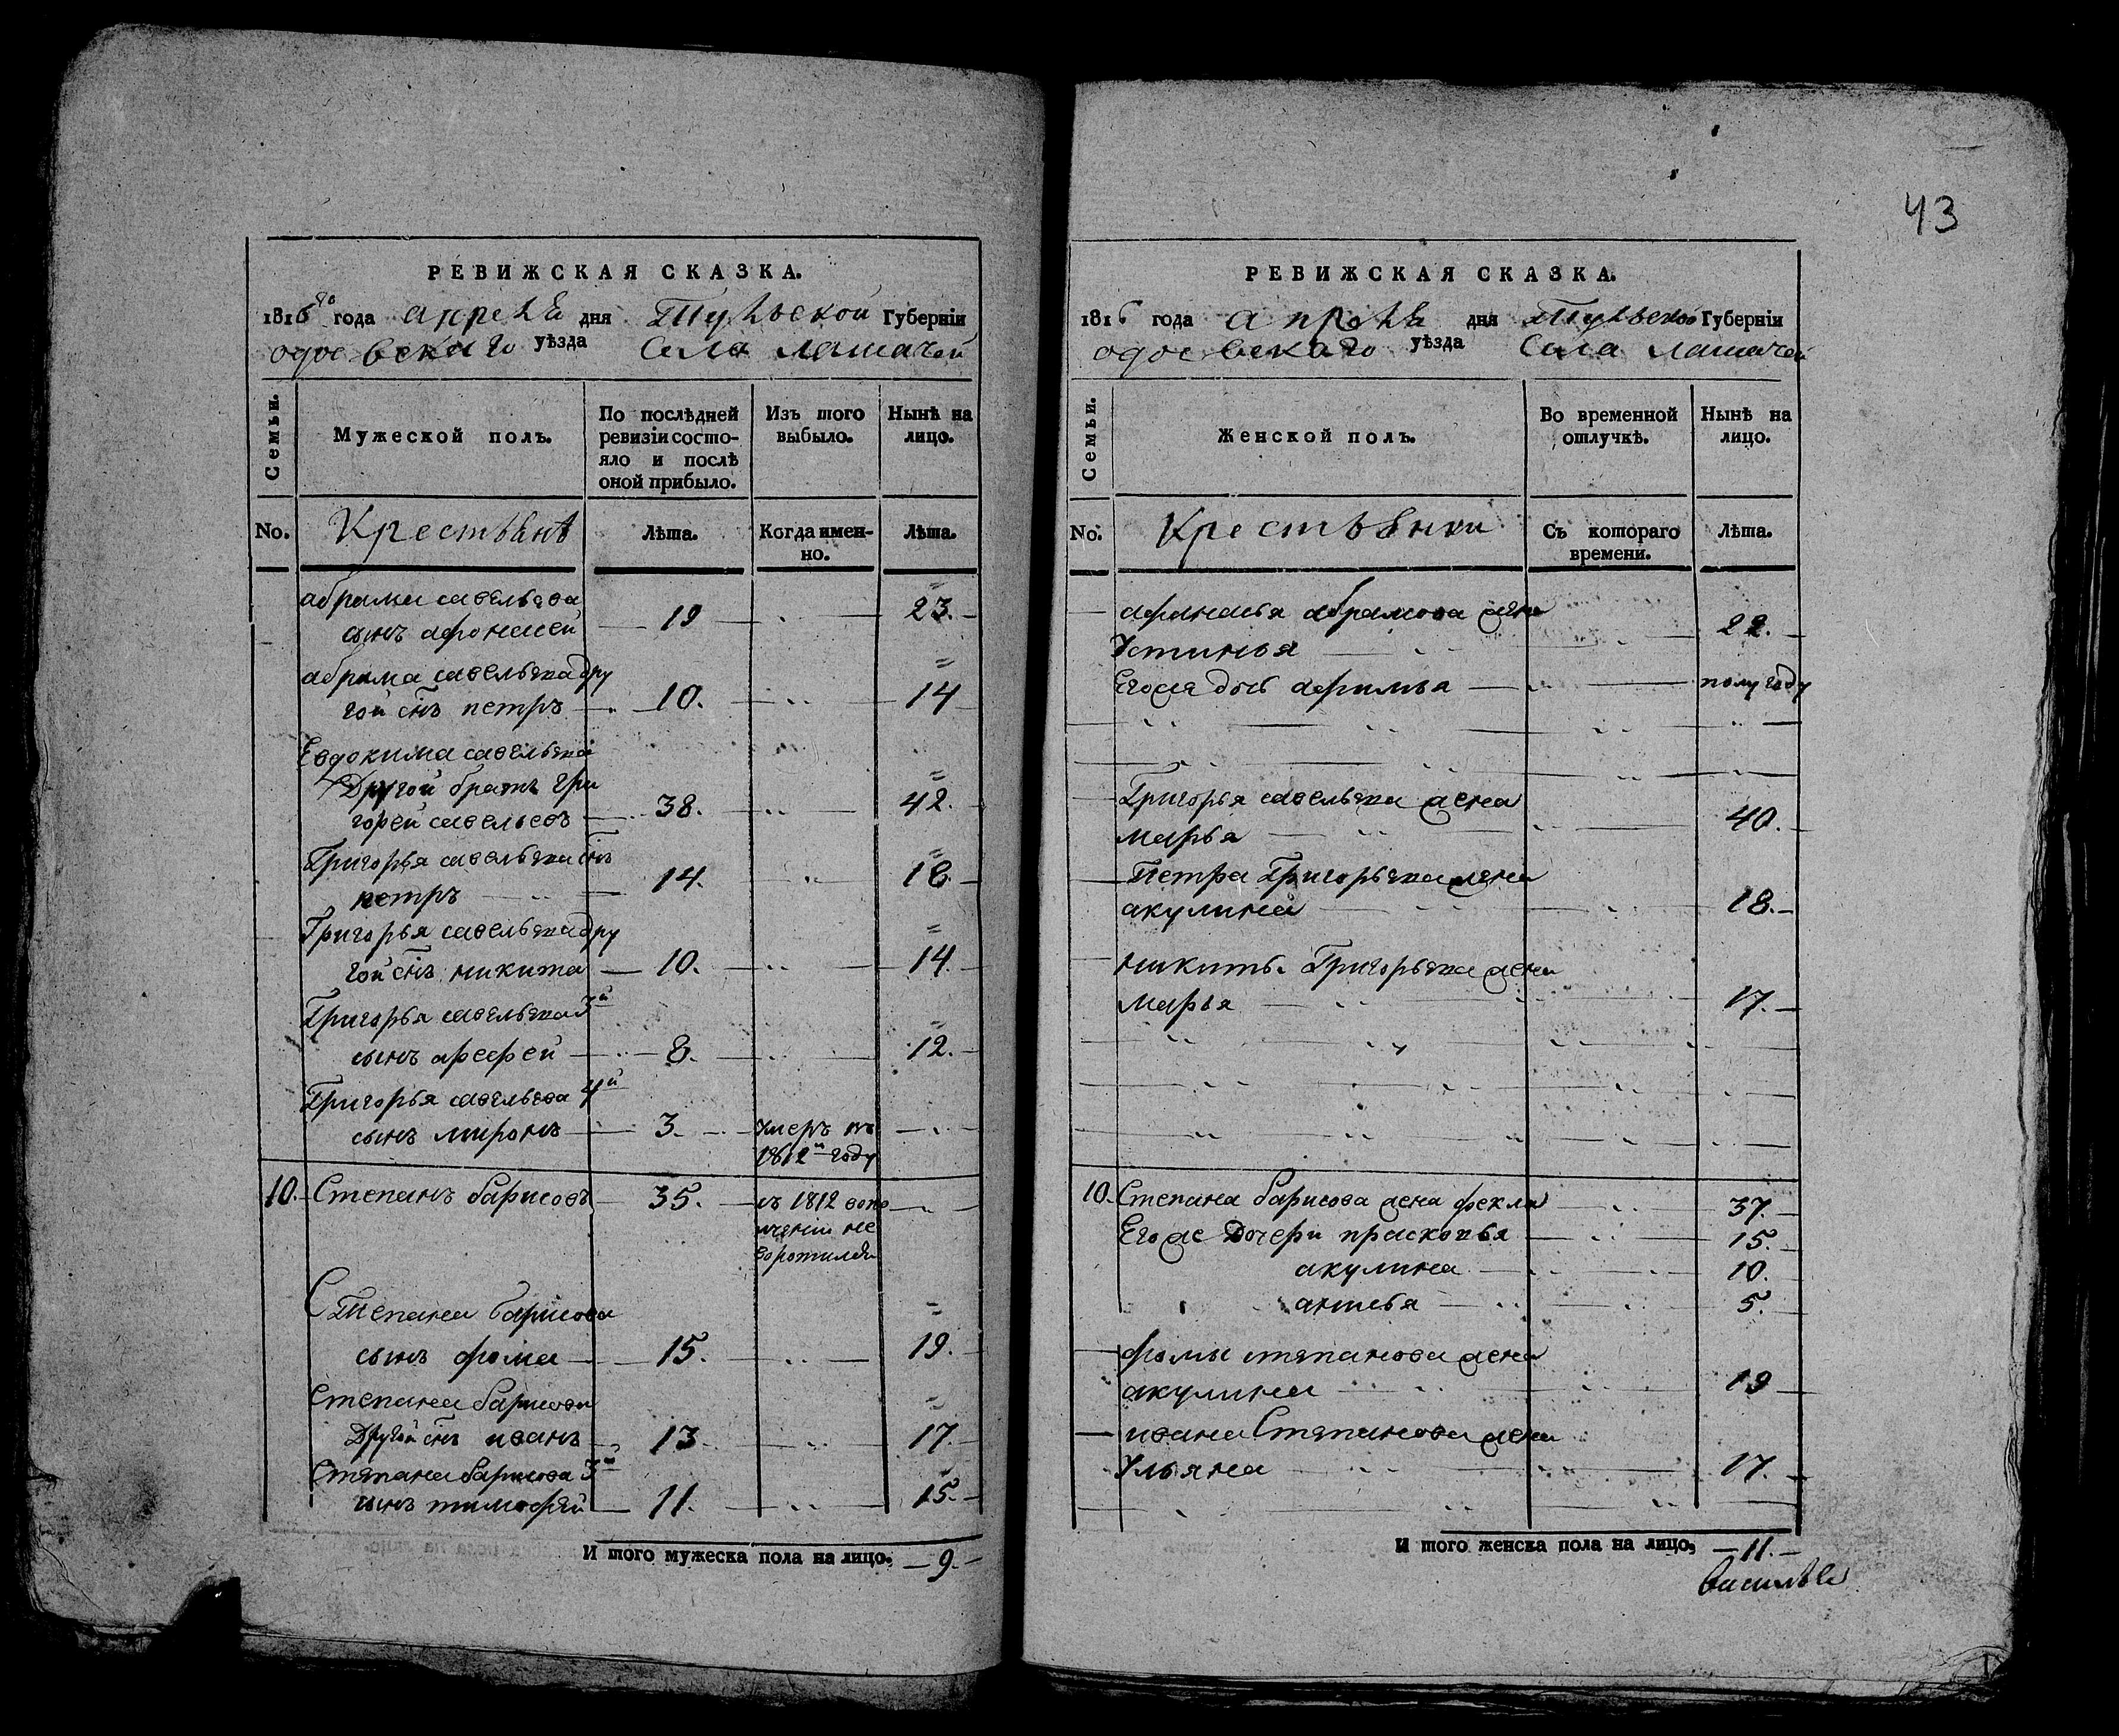 43
РЕВИЖСКАЯ СКАЗКА.
1816го года апреля дня Тульской Губерніи
одоевскаго уѣзда Села
Семьи.
Мужеской полъ.
По послѣдней ревизіи состояло и послѣ оной прибыло.
Изъ того выбыло.
Нынѣ на лицо.
No.
Крестьянѣ
Лѣта.
Когда именно.
Лѣта.
абрама савельева
сынъ афонасей 19 23.
абрама савельева дру
гой снъ петръ 10. 14
Евдокима савельева
Другой братъ гри
горей савельевъ 38. 42.
Григорья савельева снъ
петръ 14. 18.
Григорья савельева дру
гой снъ никита 10. 14
Григорья савельева 3й
сынъ арефей 8. 12.
Григорья савельева 4й
сынъ миронъ 3. умеръ въ
1812м году
10. Степанъ барисовъ 35. въ 1812 вопо
лчении не
воротился
Степана барисова
сынъ фома 15. 19.
Степана барисова
Другой снъ иванъ 13 17.
Степана барисова 3й
сынъ тимофей 11. 15.
И того мужеска пола на лицо. 9.
РЕВИЖСКАЯ СКАЗКА.
1816 года апреля дня Тульской Губерніи
одоевскаго уѣзда Села
Семьи.
Женской полъ.
Во временной отлучкѣ.
Нынѣ на лицо.
No.
Крестьянки
Съ котораго времени.
Лѣта.
афанасья абрамова жена
Устинья 22.
Егожа дочь афимья полугоду
Григорья савельева жена
марья 40.
Петра Григорьева жена
акулина 18.
никиты Григорьева жена
марья 17.
10. Степана барисова жена фекла 37.
Егоже Дочери прасковья 15.
акулина 10.
5.
фомы степанова жена
акулина 19
ивана Степанова жена
Ульяна 17.
И того женска пола на лицо, 11.